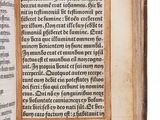 bonū nomē erat iohannes. hic ve
nit in testimoniū: vt testimoniū per
hiberet de lumine: vt oēs crederent
per illum. Non erat ille lux: sed vt te
stimonium perhiberet de lumine. Erat
lux vera: que illuminat omnem ho
minem venientem in hunc mundū.
In mundo erat: et mundus per ip
sum factus est: et mundus eum non
cognouit. In propria venit: et sui eum nō
receperunt. Quotquot autem recepe
runt eum: dedit eis potestatem filios
dei fieri: his qui credunt in nomine
eius. Qui non ex sanguinibus: neqȝ
ex voluntate carnis: neqȝ ex volun
tate viri: sed ex deo nati sūt. Et ver
bum caro factum est: et habitauit in